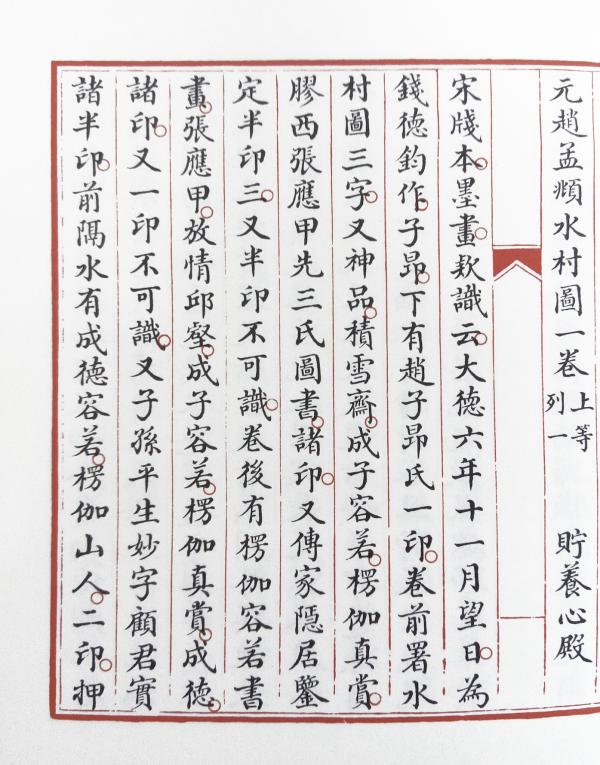 元趙孟頫水村圖一卷 上等列一 貯養心殿
宋牋本。墨畫。欵識云。大德六年十一月望日。為
錢德鈞作。子昂。下有趙子昂氏一印。卷前署水
村圖三字。又神品。積雪齋。成子容若。楞伽真賞。
膠西張應甲先三氏圖書。諸印。又傳家隱居鑒
定半印三。又半印不可識。卷後有楞伽容若書
畫。張應甲。放情邱壑。成子容若。楞伽真賞。成德。
諸印。又一印不可識。又子孫平生妙字顧君實
諸半印。前隅水有成德容若。楞伽山人。二印。押